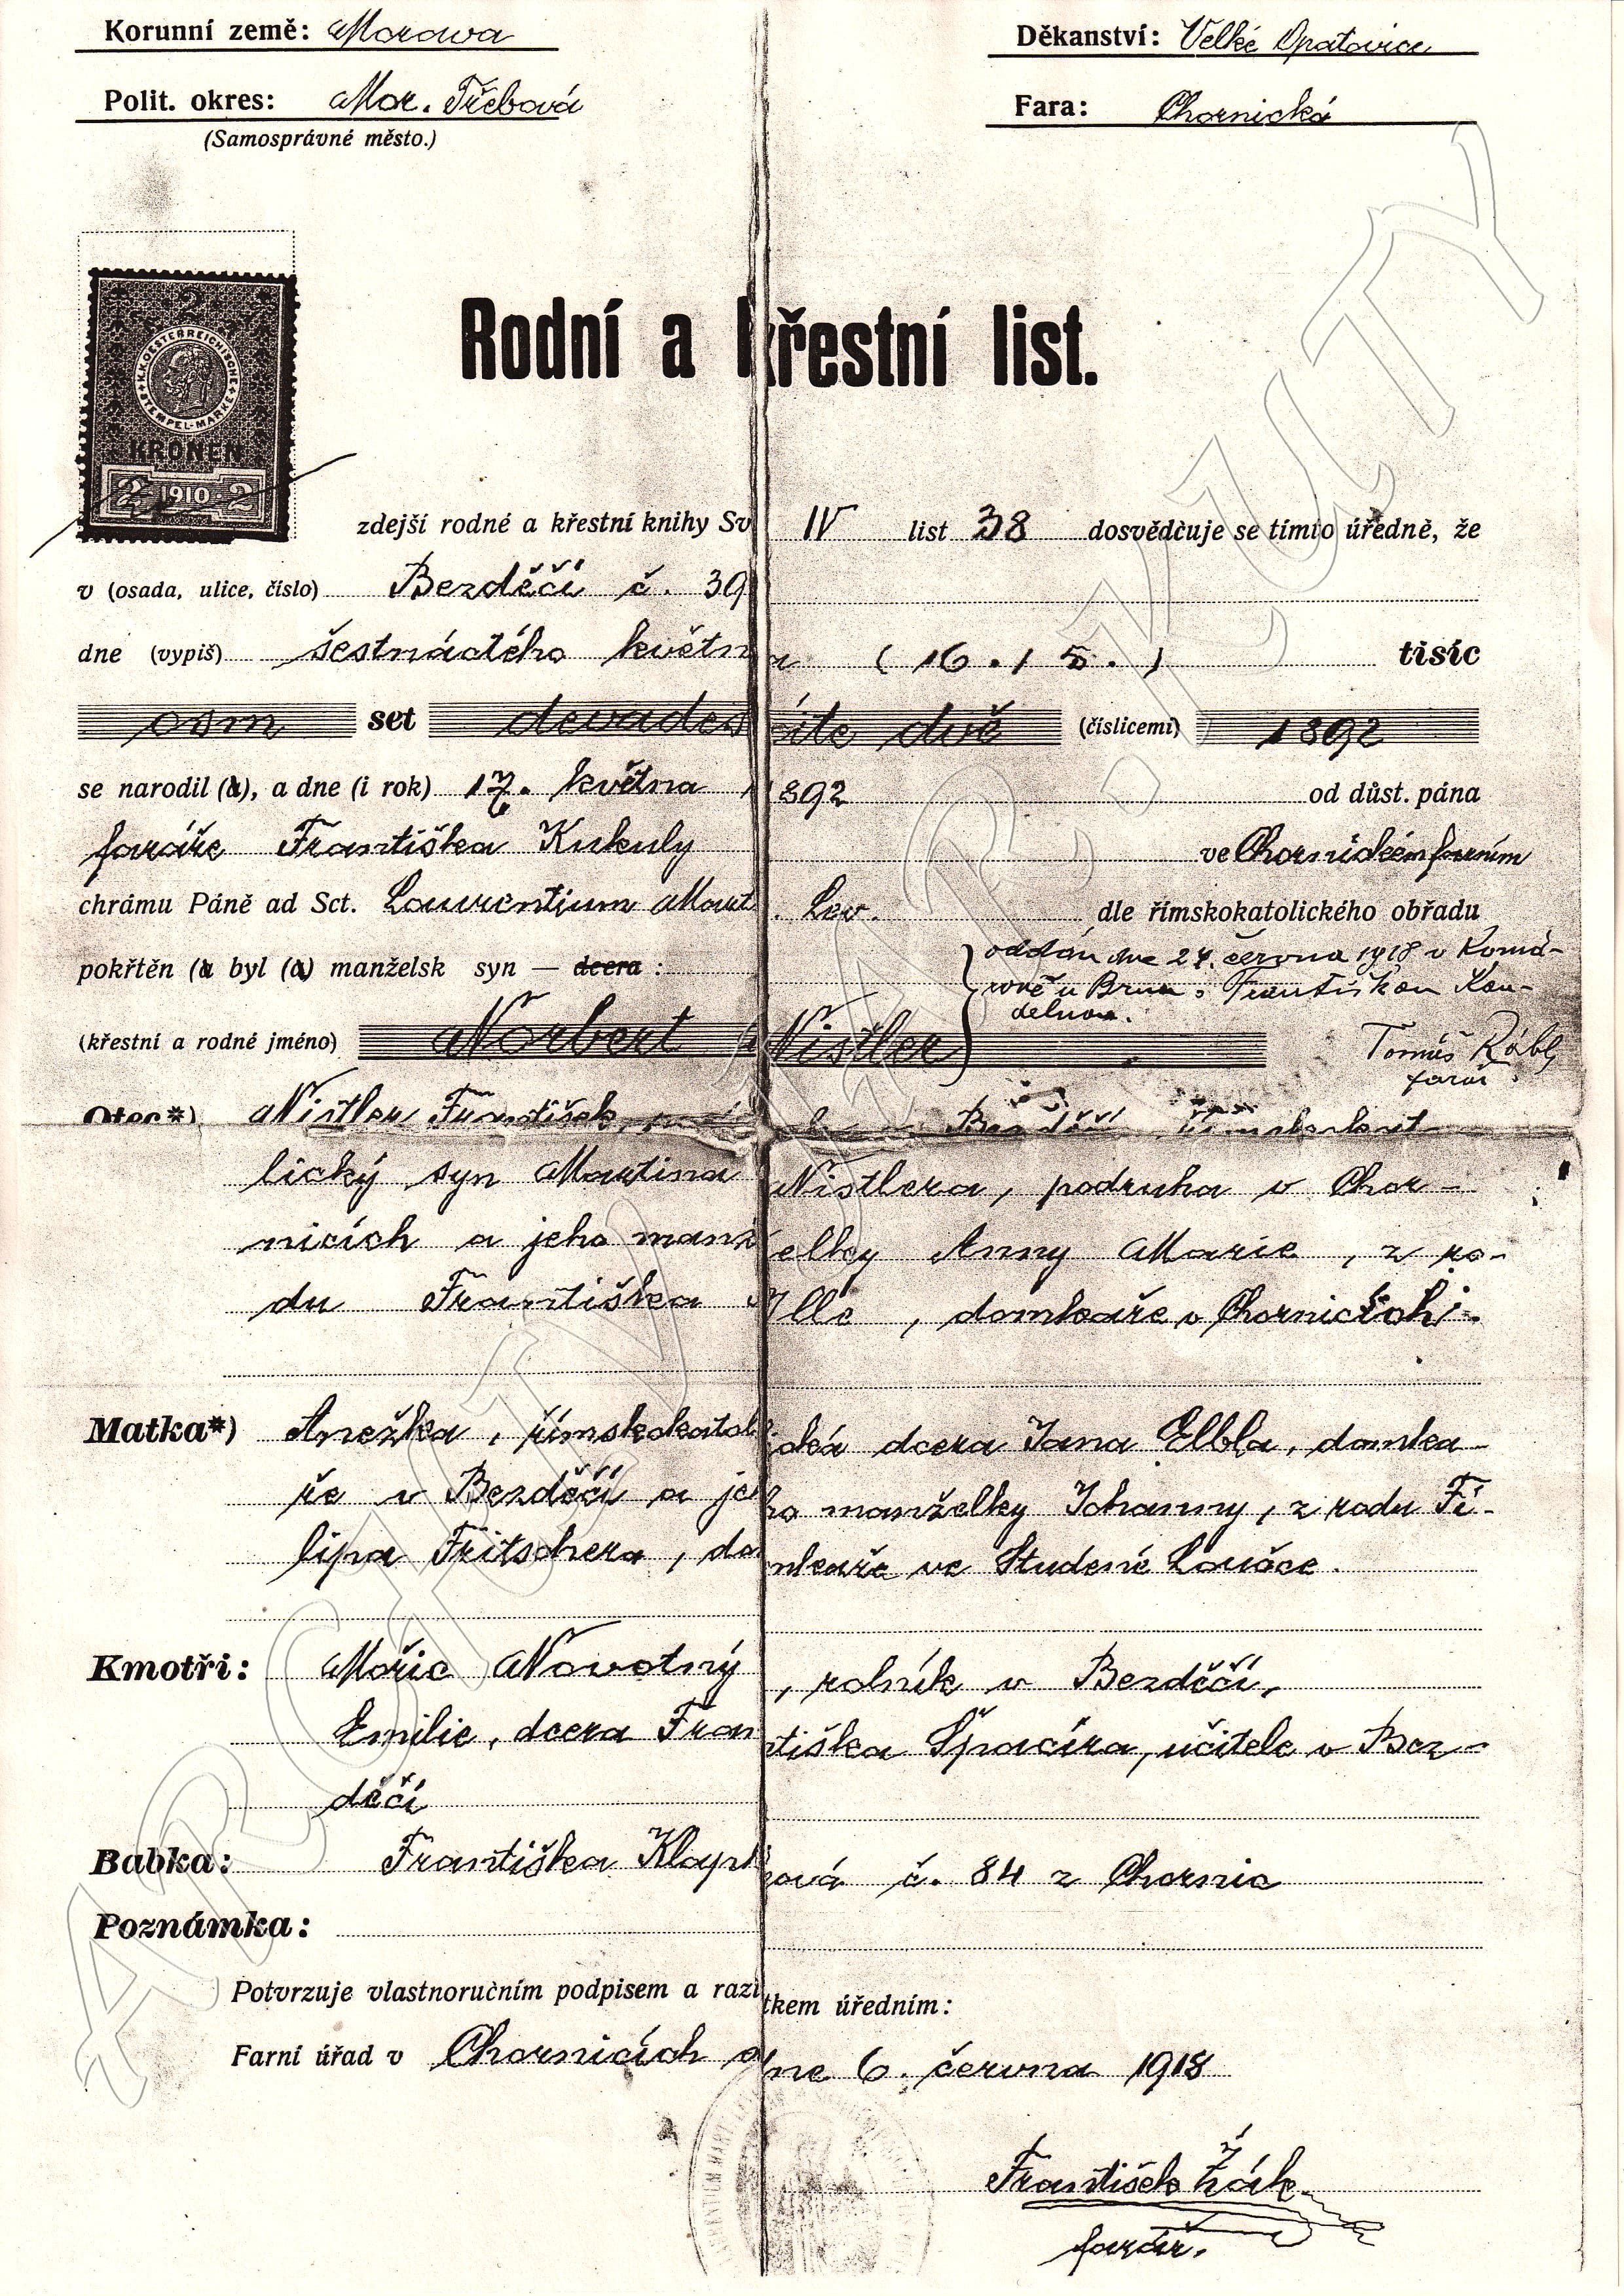 Korunní země: Morawa
Děkanství: Velké Opatovice
Polit. okres: Mor. Třebová
Fara: Chornická
(Samosprávné město.)
2
K.K. OESTERREICHISCHE STEMPEL-MARKE
KRONEN
2 1910 2
Rodní a křestní list.
zdejší rodné a křestní knihy Sv IV list 38 dosvědčuje se tímto úředně, že
v (osada, ulice, číslo) Bezděčí č. 39
dne (vypiš) šestnáctého května (16. 5.) tisíc
osm set devadesáte dvě (číslicemi) 1892
se narodil (a), a dne (i rok) 17. května 1892 od důst. pána
faráře Františka Kukuly ve Chornickém farním
chrámu Páně ad Sct. Laurentium Mart. Lev. dle římskokatolického obřadu
pokřtěn (a byl (a) manželsk syn — dcera :
oddán dne 24. června 1918 v Komá-
rově u Brna s Františkou Kou-
delnou.
(křestní a rodné jméno) Norbert Nistler
Tomáš Rábl
farář.
Otec*) Nistler František, Bezděčí římskokat
lický syn Martina Nistlera, podruha v Chor-
nicích a jeho manželky Anny Marie, z ro-
du Františka Ille, domkaře v Chornicích.
Matka*) Anežka, římskokatolická dcera Jana Elbla, domka-
ře v Bezděčí a jeho manželky Johanny, z rodu Fi-
lipa Fritschera, domkaře ve Studené Loučce.
Kmotři: Mořic Novotný, rolník v Bezděčí,
Emilie, dcera Františka Špacíra, učitele v Bez-
děčí
Babka: Františka č. 84 z Chornic
Poznámka:
Potvrzuje vlastnoručním podpisem a razítkem úředním:
Farní úřad v Chornicích dne 6. června 1918
František Žák
farář.